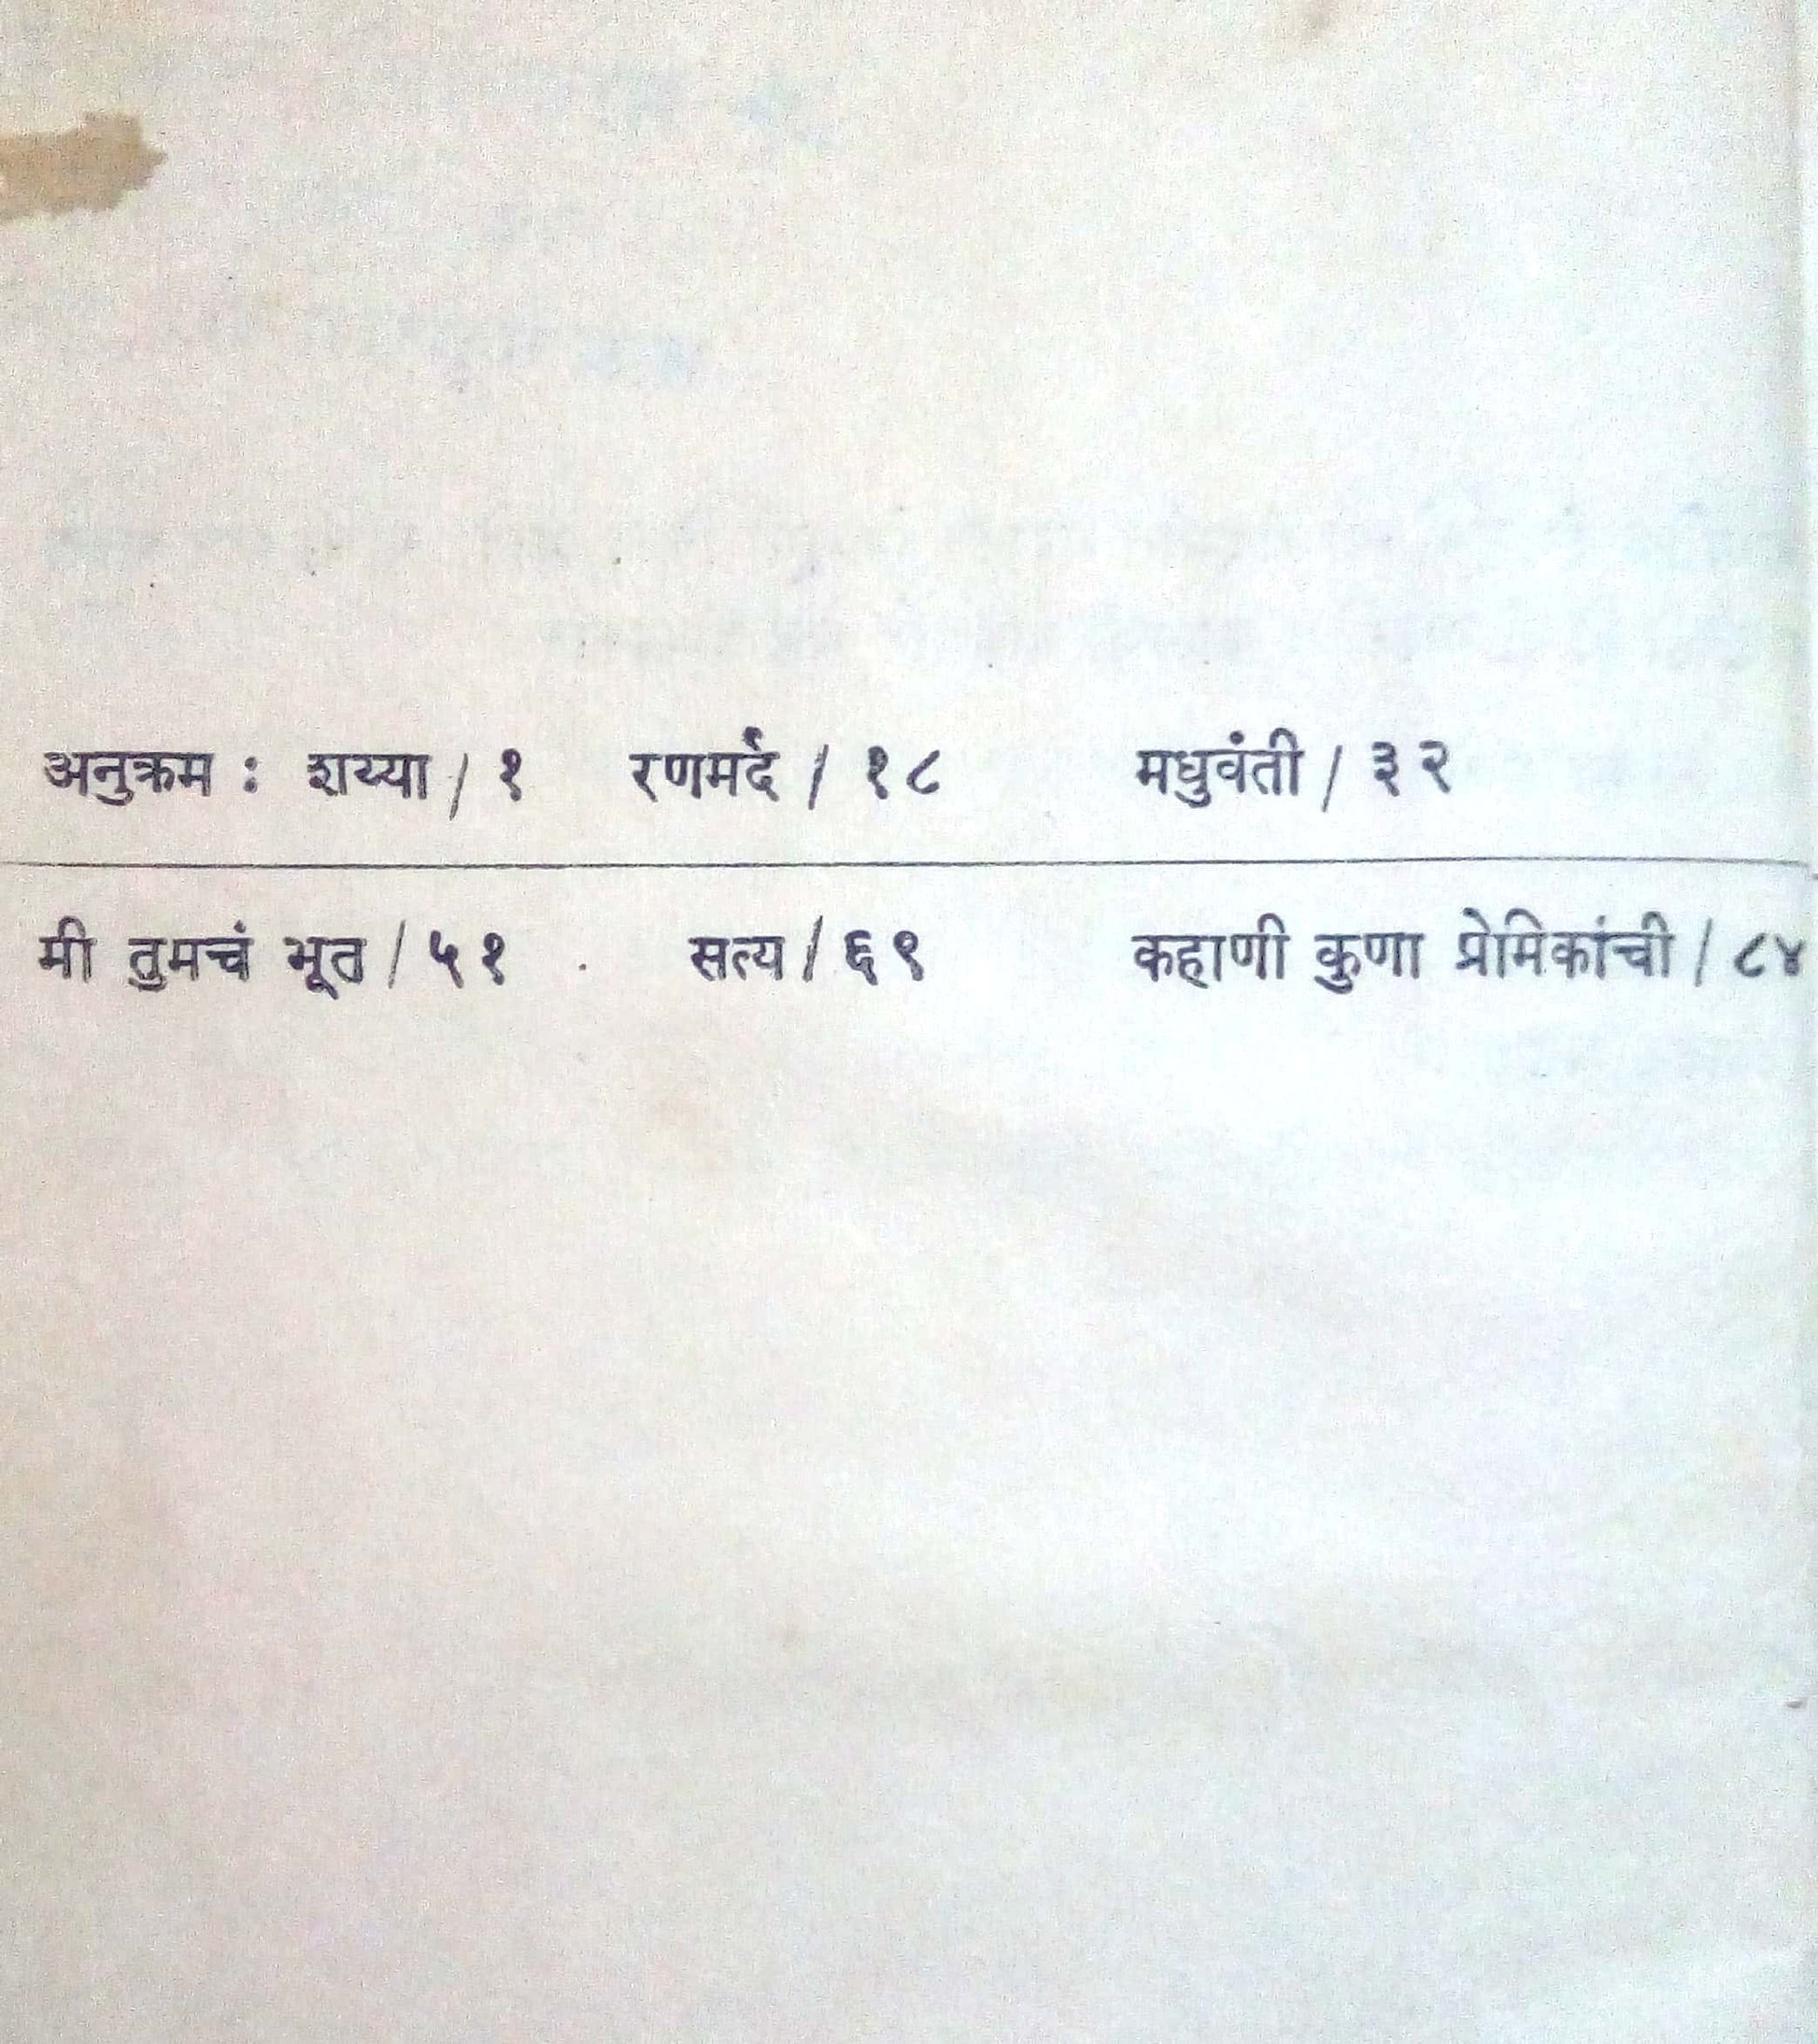 अनुक्रम : शय्या / १ रणमर्द / १८ मधुवंती / ३२
मी तुमचं भूत / ५१ सत्य / ६९ कहाणी कुणा प्रेमिकांची / ८४